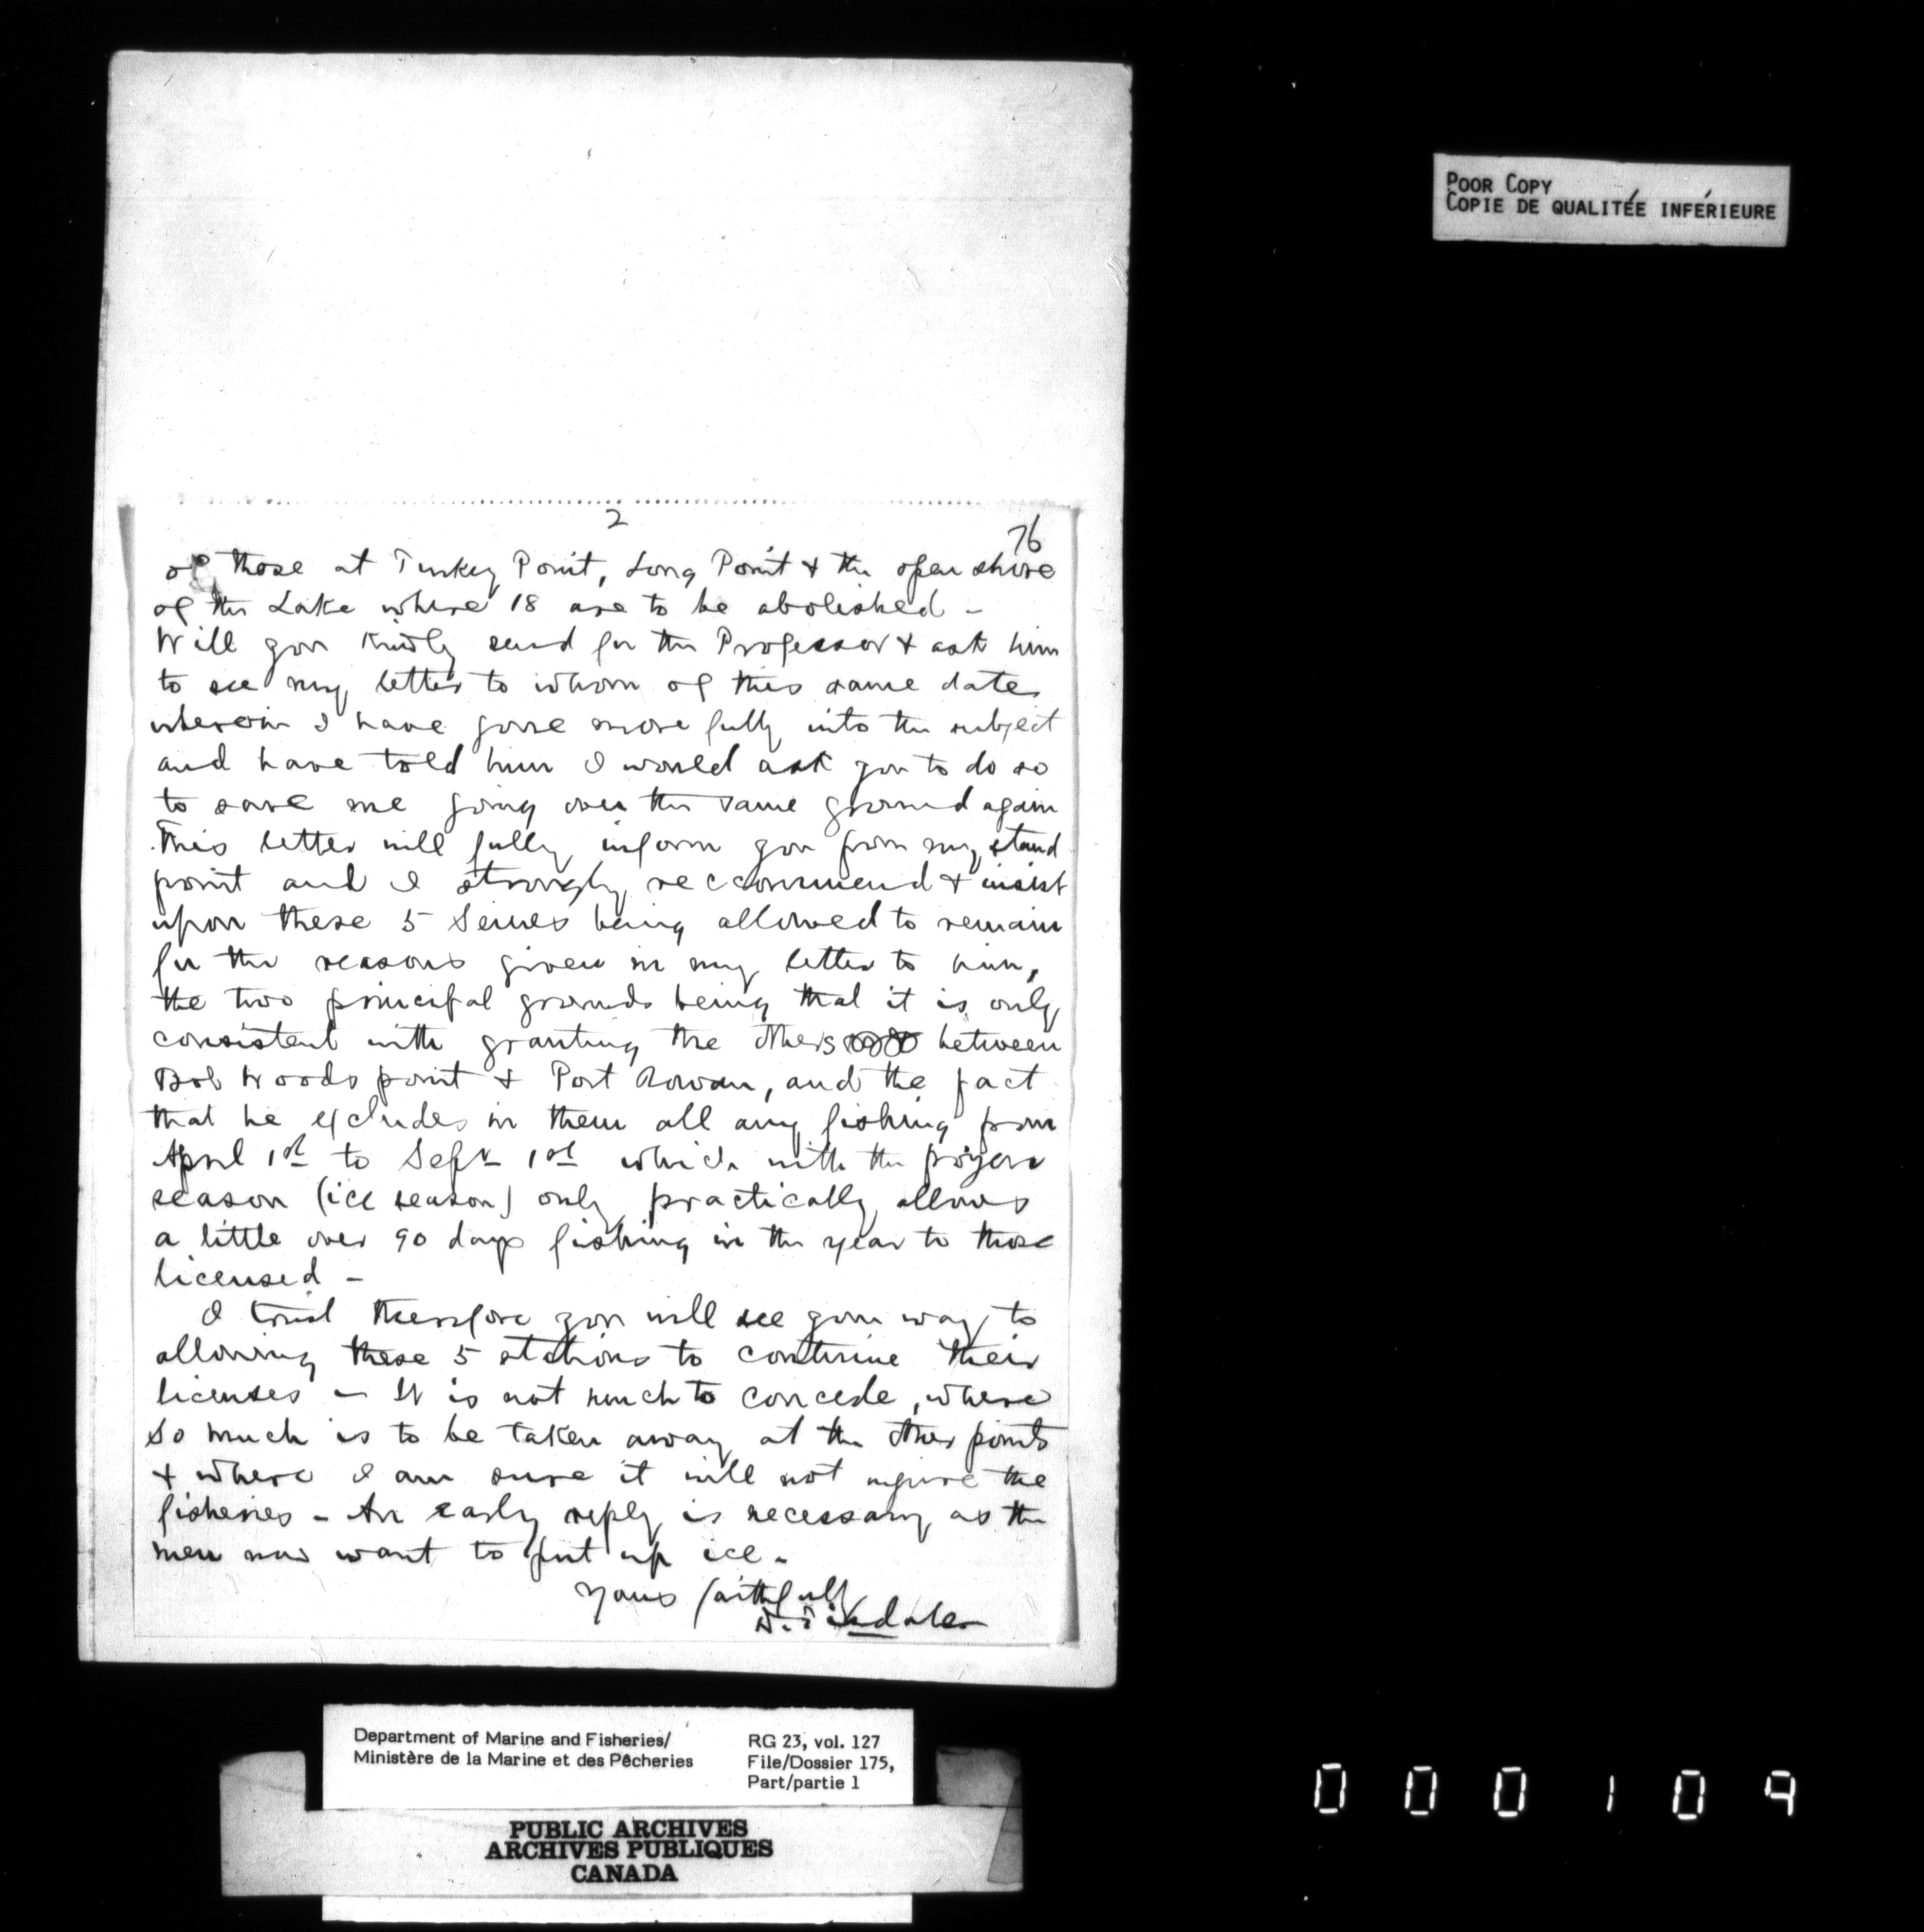 POOR COPY
COPIE DE QUALITÉE INFÉRIEURE
2
76
of those at Turkey Point, Long Point & the open shore
of the Lake where 18 are to be abolished -
Will you kindly send for the Professor & ask him
to see my letter to whom of this same date
wherein I have gone more fully into the subject
and have told him I would ask you to do so
to save me going over the same ground again
This letter will fully inform you from my stand
point and I strongly reccommend & insist
upon these 5 Seines being allowed to remain
for the reasons given in my letter to him,
the two principal grounds being that it is only
consistent with granting the others between
Bob Woods point & Port Rowan, and the fact
that he excludes in them all any fishing from
April 1st to Sept 1st which with the frozen
season (ice season) only practically allows
a little over 90 days fishing in the year to those
licensed -
I trust therefore you will see your way to
allowing these 5 stations to continue their
licenses - It is not much to concede, where
so much is to be taken away at the other points
& where I am sure it will not injure the
fisheries - An early reply is necessary as the
men now want to put up ice -
Yours faithfully
D. Tisdale
Department of Marine and Fisheries/
Ministère de la Marine et des Pêcheries
RG 23, vol. 127
File/Dossier 175,
Part/partie 1
PUBLIC ARCHIVES
ARCHIVES PUBLIQUES
CANADA
000109